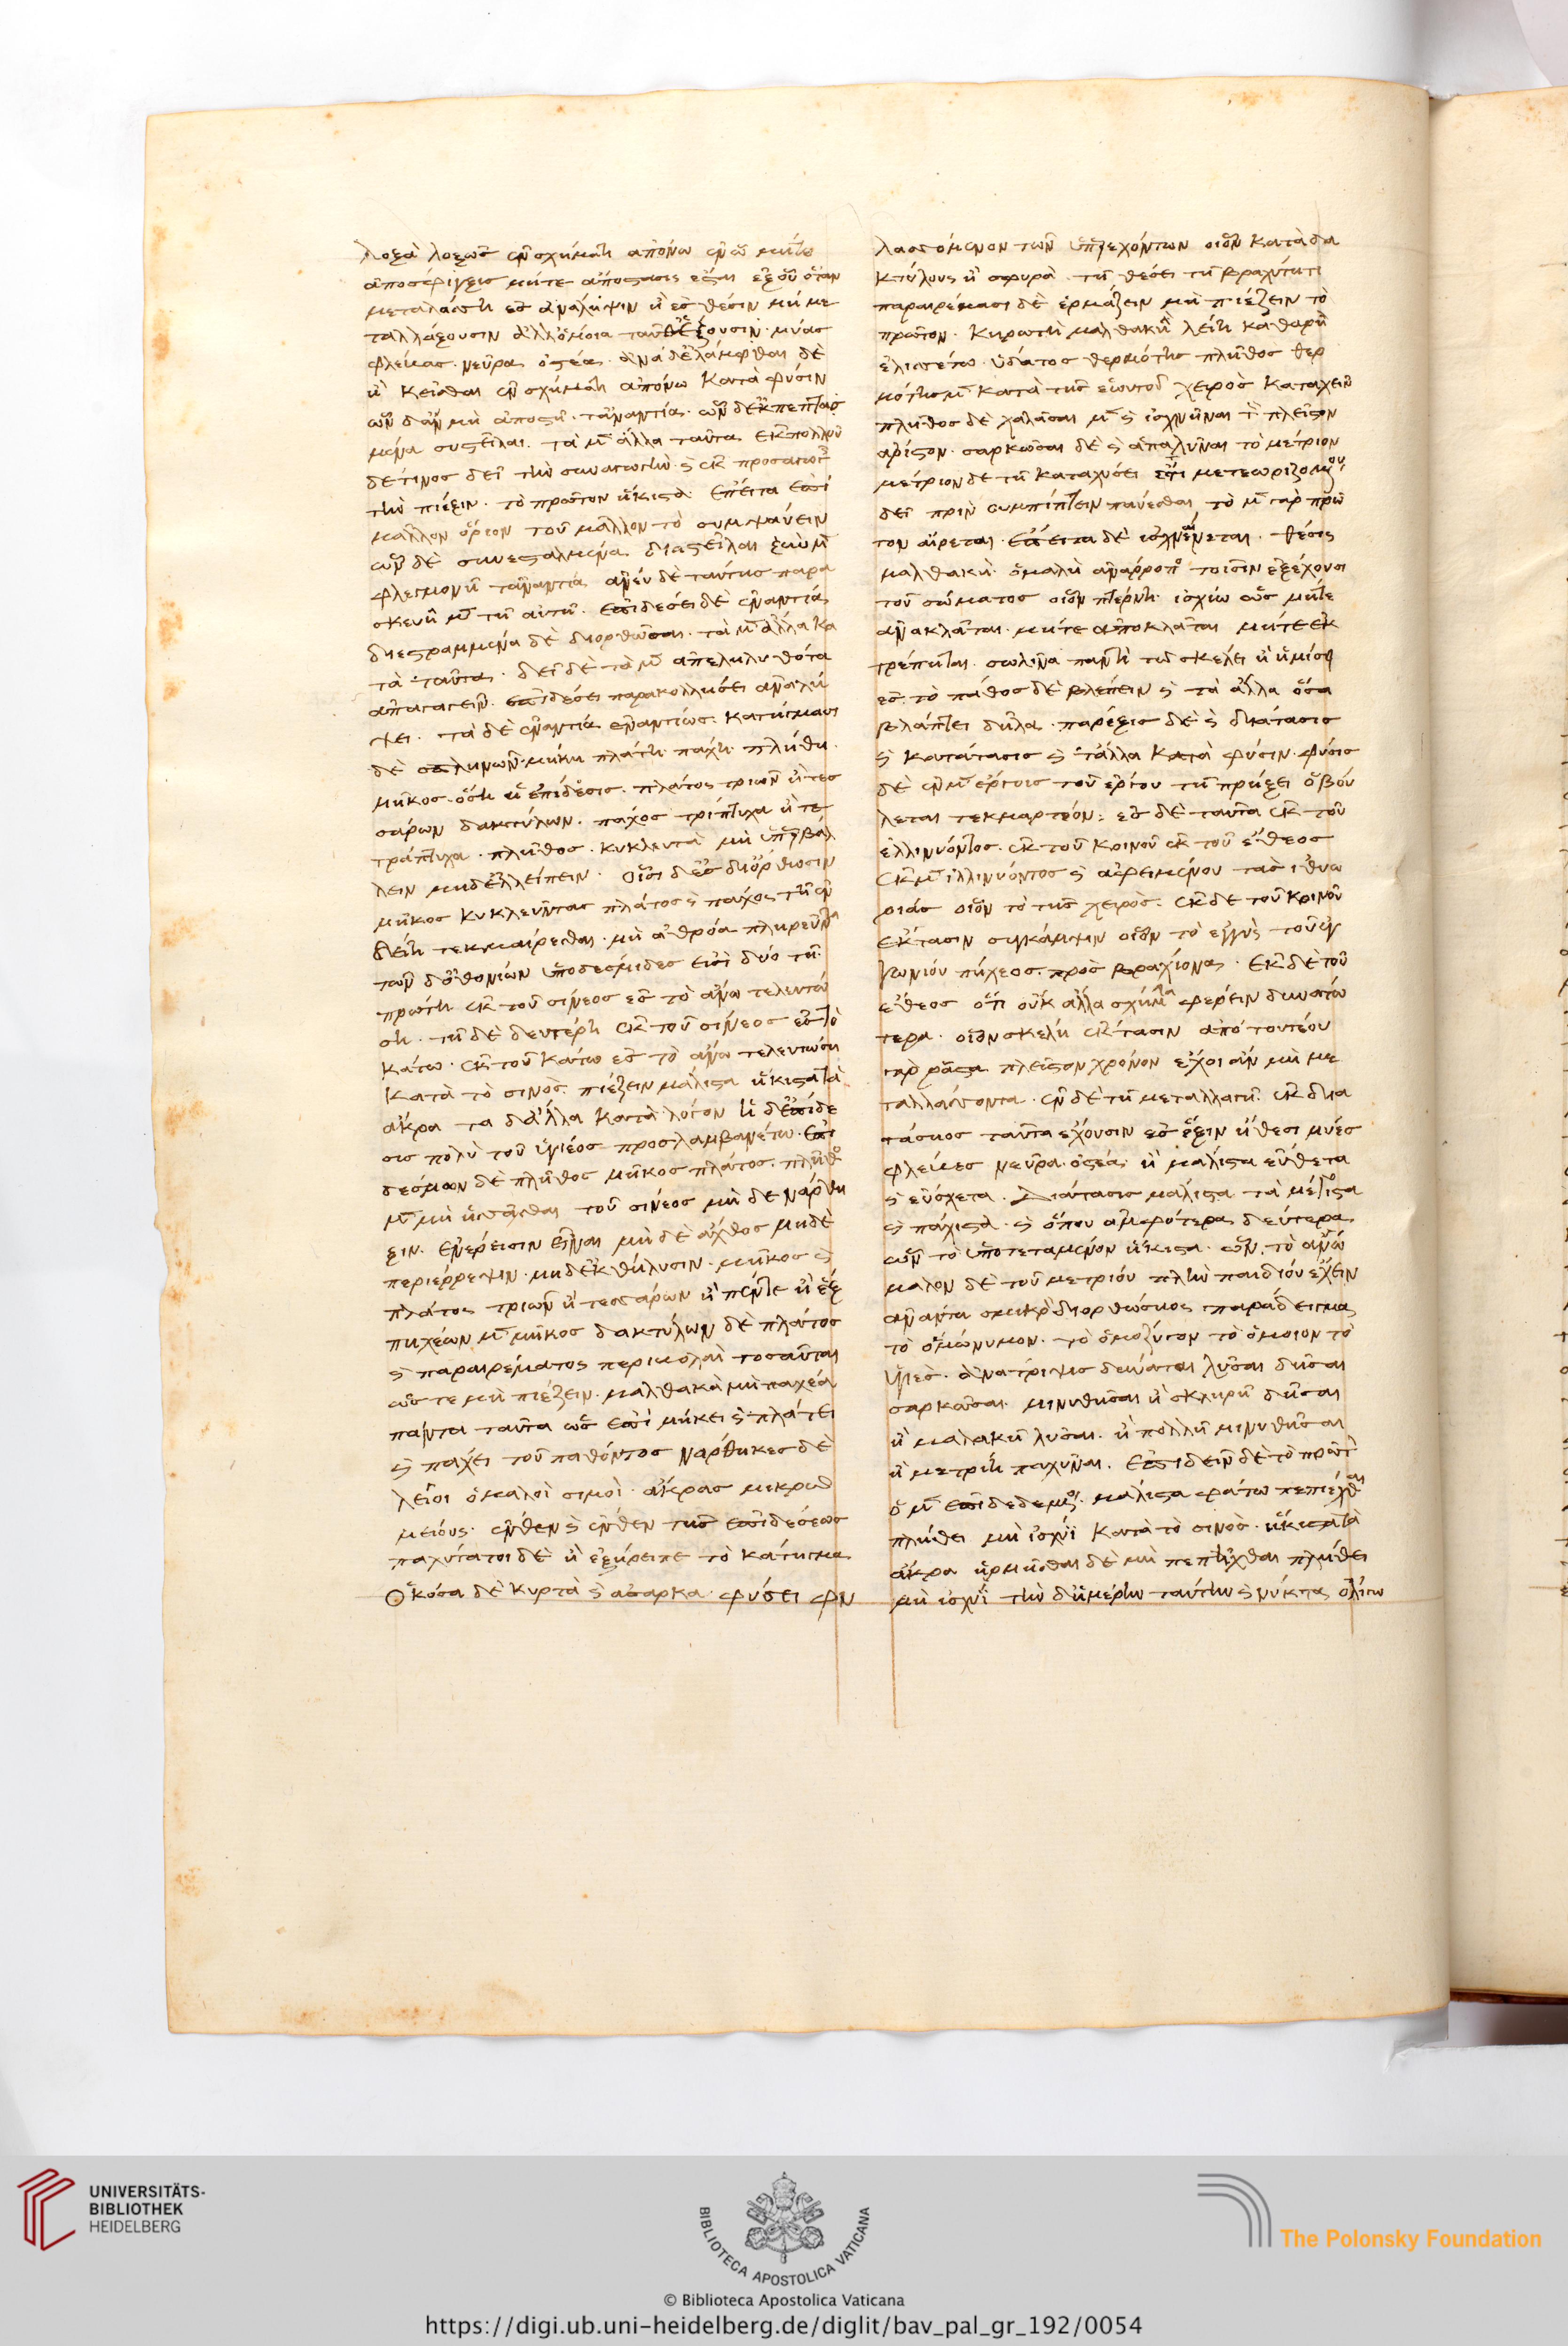 λοξὰ λοξῶς ἐν σχήματι ἀπόνω ἐν ὧ μήτε
ἀποστήριγξις μήτε ἀπόστασις ἔσται ἐξ οὗ ὅταν
μεταλάσση ἐς ἀνάληψιν ἢ ἐς θέσιν μὴ με
ταλλάξουσιν ἀλλ' ὅμοια ταῦτα ἕξουσιν· μύας
φλέβας· νεῦρα ὀστέα· ἀναδελάμφθαι δὲ
ἢ κεῖσθαι ἐν σχήματι ἀπόνω κατὰ φύσιν
ὧν δ' ἂν μὴ ἀποστῆ· τἀναντία· ὧν δ' ἐκπεπτασ
μένα συστεῖλαι· τὰ μὲν ἄλλα ταῦτα ἐκ πολλοῦ
δέ τινος δεῖ τὴν συναγωγὴν καὶ ἐκ προσαγωγῆς
τὴν πίεξιν· τὸ πρῶτον ἥκιστα· ἔπειτα ἐπὶ
μᾶλλον ὅριον τοῦ μᾶλλον τὸ συμψαύειν
ὧν δὲ συνεσταλμένα διαστεῖλαι ξὺν μὲν
φλεγμονῆ τἀναντία ἄνευ δὲ ταύτης παρα
σκευῆ μὲν τῆ αὐτῆ· ἐπιδέσει δὲ ἐναντία
διεστραμμένα δὲ διορθῶσαι· τὰ μὲν ἄλλα κα
τὰ ταῦτα· δεῖ δὲ τὰ μὲν ἀπεληλυθότα
ἀπαγαγεῖν· ἐπιδέσει παρακολλήσει ἀναλή
ψει· τὰ δὲ ἐναντία ἐναντίως· κατήγμασι
δὲ σπληνῶν· μήκη πλάτη πάχη πλήθη·
μῆκος ὅση ἡ ἐπίδεσις· πλάτος τριῶν ἢ τεσ
σάρων δακτύλων· πάχος τρίπτυχα ἢ τε
τράπτυχα· πλῆθος· κυκλεῦντα μὴ ὑπερβάλ
λειν μηδ' ἐλλείπειν· οἷσι δ' ἐς διόρθωσιν
μῆκος κυκλεῦντας πλάτος καὶ πάχος τῆ ἐν
δείη τεκμαίρεσθαι· μὴ ἀθρόα πληρεῦντα
τῶν δ' ὀθονίων ὑποδεσμίδες εἰσὶ δύο τῆ
πρώτη ἐκ τοῦ σίνεος ἐς τὸ ἄνω τελευτά
ση· τῆ δὲ δευτέρη ἐκ τοῦ σίνεος ἐς τὸ
κάτω· ἐκ τοῦ κάτω ἐς τὸ ἄνω τελευτώση
κατὰ τὸ σίνος πιέζειν μάλιστα ἥκιστα τὰ
ἄκρα τὰ δ' ἄλλα κατὰ λόγον ἡ δ' ἐπίδε
σις πολὺ τοῦ ὑγιέος προσλαμβανέτω· ἐπι
δέσμων δὲ πλῆθος μῆκος πλάτος· πλῆθος
μὲν μὴ ἡσσᾶσθαι τοῦ σίνεος μηδὲ νάρθη
ξιν· ἐνέρεισιν εἶναι μηδὲ ἄχθος μηδὲ
περιέρρεψιν· μηδ' ἐκθήλυσιν· μῆκος καὶ
πλάτος τριῶν ἢ τεσσάρων ἢ πέντε ἢ ἓξ
πηχέων μὲν μῆκος δακτύλων δὲ πλάτος
καὶ παραιρέματος περιβολαὶ τοσαῦται
ὥστε μὴ πιέζειν· μαλθακὰ μὴ παχέα
πάντα ταῦτα ὡς ἐπὶ μήκει καὶ πλάτει
καὶ πάχει τοῦ παθόντος νάρθηκες δὲ
λεῖοι ὁμαλοὶ σιμοὶ· ἄκρας μικρῶ
μείους· ἔνθεν καὶ ἔνθεν τῆς ἐπιδέσεως
παχύτατοι δὲ ἧ ἐξήρειπε τὸ κάτηγμα
ὁκόσα δὲ κυρτὰ καὶ ἄσαρκα· φύσει φυ
λασσόμενον τῶν ὑπερεχόντων οἷον κατὰ δα
κτύλους ἢ σφυρὰ τῆ θέσει τῆ βραχύτητι
παραιρέμασι δὲ ἁρμόζειν μὴ πιέζειν τὸ
πρῶτον· κηρωτῆ μαλθακῆ λείη καθαρῆ
ἑλισσέτω· ὕδατος θερμότης πλῆθος θερ
μότης μὲν κατὰ τῆς ἑωυτοῦ χειρὸς καταχεῖν
πλῆθος δὲ χαλάσαι μὲν καὶ ἰσχνῆναι τὸ πλεῖστον
ἄριστον· σαρκῶσαι δὲ καὶ ἁπαλῦναι τὸ μέτριον
μέτριον δὲ τῆ καταχύσει ἔτι μετεωριζομένου
δεῖ πρὶν συμπίπτειν παύεσθαι τὸ μὲν γὰρ πρῶ
τον αἴρεται· ἔπειτα δὲ ἰσχναίνεται· θέσις
μαλθακὴ· ὁμαλὴ ἀνάρροπος τοῖσιν ἐξέχουσι
τοῦ σώματος οἷον πτέρνη· ἰσχίω ὡς μήτε
ἀνακλᾶται· μήτε ἀποκλᾶται μήτε ἐκ
τρέπηται· σωλῆνα παντὶ τῶ σκέλει ἢ ἡμίσει
ἐς τὸ πάθος δὲ βλέπειν καὶ τὰ ἄλλα ὅσα
βλάπτει δῆλα· παρέξις δὲ καὶ διάτασις
καὶ κατάτασις καὶ τἄλλα κατὰ φύσιν· φύσις
δὲ ἐν μὲν ἔργοις τοῦ ἔργου τῆ πρήξει ὃ βού
λεται τεκμαρτέον· ἐς δὲ ταῦτα ἐκ τοῦ
ἐλλινύοντος· ἐκ τοῦ κοινοῦ ἐκ τοῦ ἔθεος
ἐκ μὲν ἐλλινύοντος καὶ ἀφειμένου τὰς ἰθυω
ριάς οἷον τὸ τῆς χειρός· ἐκ δὲ τοῦ κοινοῦ
ἔκτασιν σύγκαμψιν οἷον τὸ ἐγγὺς τοῦ ἐγ
γωνίου πήχεος πρὸς βραχίονας· ἐκ δὲ τοῦ
ἔθεος ὅτι οὐκ ἄλλα σχήματα φέρειν δυνατώ
τερα· οἷον σκέλη ἔκτασιν ἀπὸ τουτέων
γὰρ ῥᾶστα πλεῖστον χρόνον ἔχοι ἂν μὴ με
ταλλάσσοντα· ἐν δὲ τῆ μεταλλαγῆ ἐκ δια
τάσιος ταῦτα ἔχουσιν ἐς ἕξιν ἢ θέσι μύες
φλέβες νεῦρα ὀστέα ἧ μάλιστα εὔθετα
καὶ εὔσχετα· διάτασις μάλιστα τὰ μέγιστα
καὶ πάχιστα· καὶ ὅπου ἀμφότερα δεύτερα
ὧν τὸ ὑποτεταμένον ἥκιστα· ὧν τὸ ἄνω
μᾶλον δὲ τοῦ μετρίου πλὴν παιδίου ἔχειν
ἀνάντη σμικρὸν διορθώσιος παράδειγμα
τὸ ὁμώνυμον· τὸ ὁμόζυγον τὸ ὅμοιον τὸ
ὑγιές· ἀνάτριψις δύναται λῦσαι δῆσαι
σαρκῶσαι· μινυθῆσαι ἡ σκληρὴ δῆσαι
ἡ μαλακὴ λῦσαι· ἡ πολλὴ μινυθῆσαι
ἡ μετρίη παχῦναι· ἐπιδεῖν δὲ τὸ πρῶτον
ὁ μὲν ἐπιδεδεμένος· μάλιστα φάτω πεπιέχθαι
πλήθει μὴ ἰσχύϊ κατὰ τὸ σίνος· ἥκιστα τὰ
ἄκρα ἡρμόσθαι δὲ μὴ πεπιέχθαι πλήθει
μὴ ἰσχύϊ τὴν δ' ἡμέρην ταύτην καὶ νύκτα ὀλίγω
UNIVERSITÄTS-
BIBLIOTHEK
HEIDELBERG
BIBLIOTECA APOSTOLICA VATICANA
The Polonsky Foundation
© Biblioteca Apostolica Vaticana
https://digi.ub.uni-heidelberg.de/diglit/bav_pal_gr_192/0054